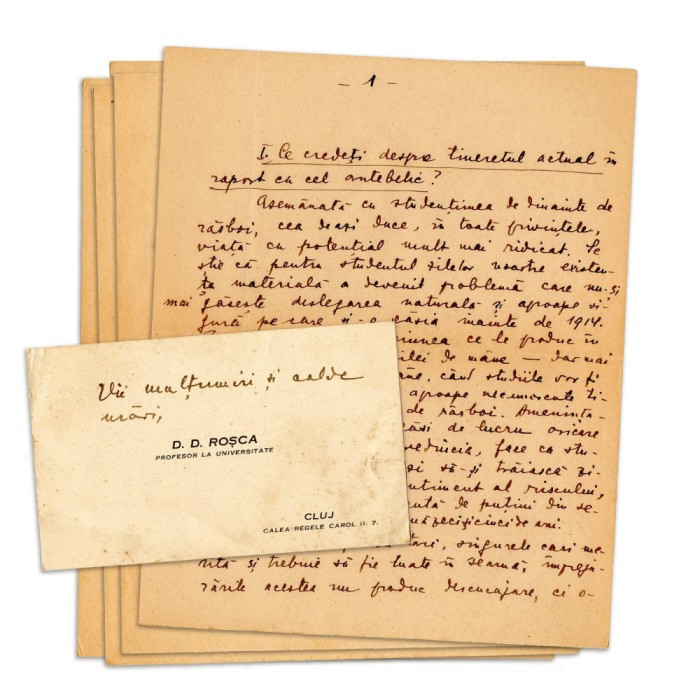 — 1 —
I. Ce credeți despre tineretul actual în
raport cu cel antebelic?
Asemănată cu studențimea de dinainte de
răsboi, cea de azi duce, în toate privințele,
viață cu potențial mult mai ridicat. Se
știe că pentru studentul zilelor noastre existen-
ța materială a devenit problemă care nu-și
mai găsește deslegarea naturală și aproape si-
gură pe care și-o găsia înainte de 1914.
ce le produc în
zilei de mâne — dar mai
când studiile vor fi
aproape necunoscute ti-
de răsboi. Amenința-
găsi de lucru oricare
face ca stu-
să-și trăiască zi-
sentiment al riscului,
de puțini din se-
douăzecișicinci de ani.
singurele cari me-
rită și trebuie să fie luate în seamă, împreju-
rările acestea nu produc descurajare, ci o-
Vii mulțumiri și calde
urări,
D. D. ROȘCA
PROFESOR LA UNIVERSITATE
CLUJ
CALEA REGELE CAROL II. 7.